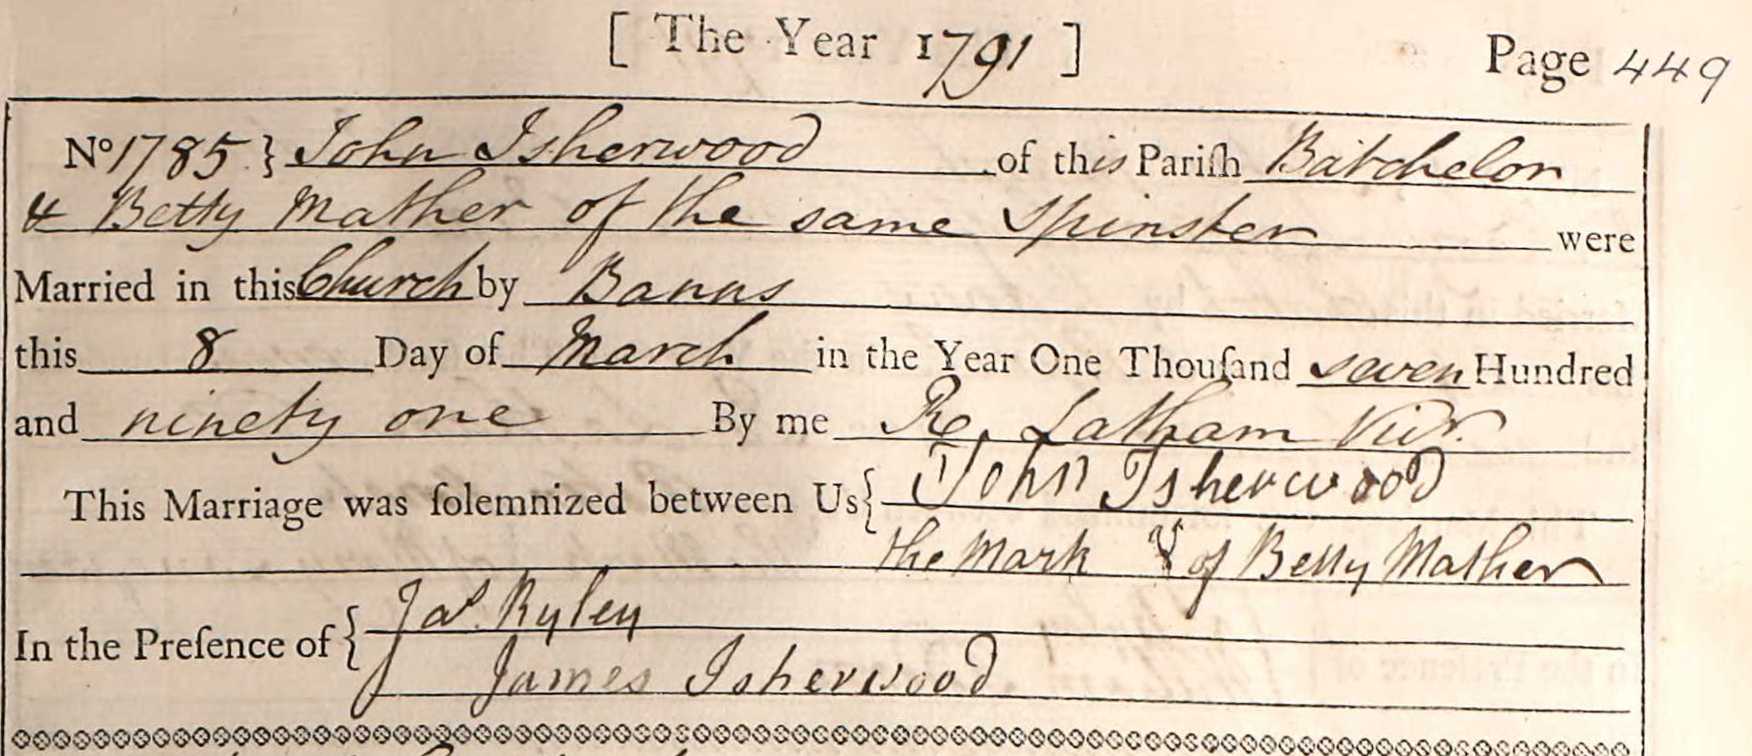 [ The Year 1791 ] Page 449
No 1785 } John Isherwood of this Pariſh Batchelor
& Betty Mather of the same Spinster were
Married in this Church by Banns
this 8 Day of March in the Year One Thouſand seven Hundred
and ninety one By me Latham Vicr.
This Marriage was ſolemnized between Us { John Isherwood
the Mark of Betty Mather
In the Preſence of { Jas. Ryley
James Isherwood